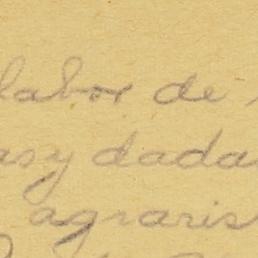 labor de
asy dada
agraris